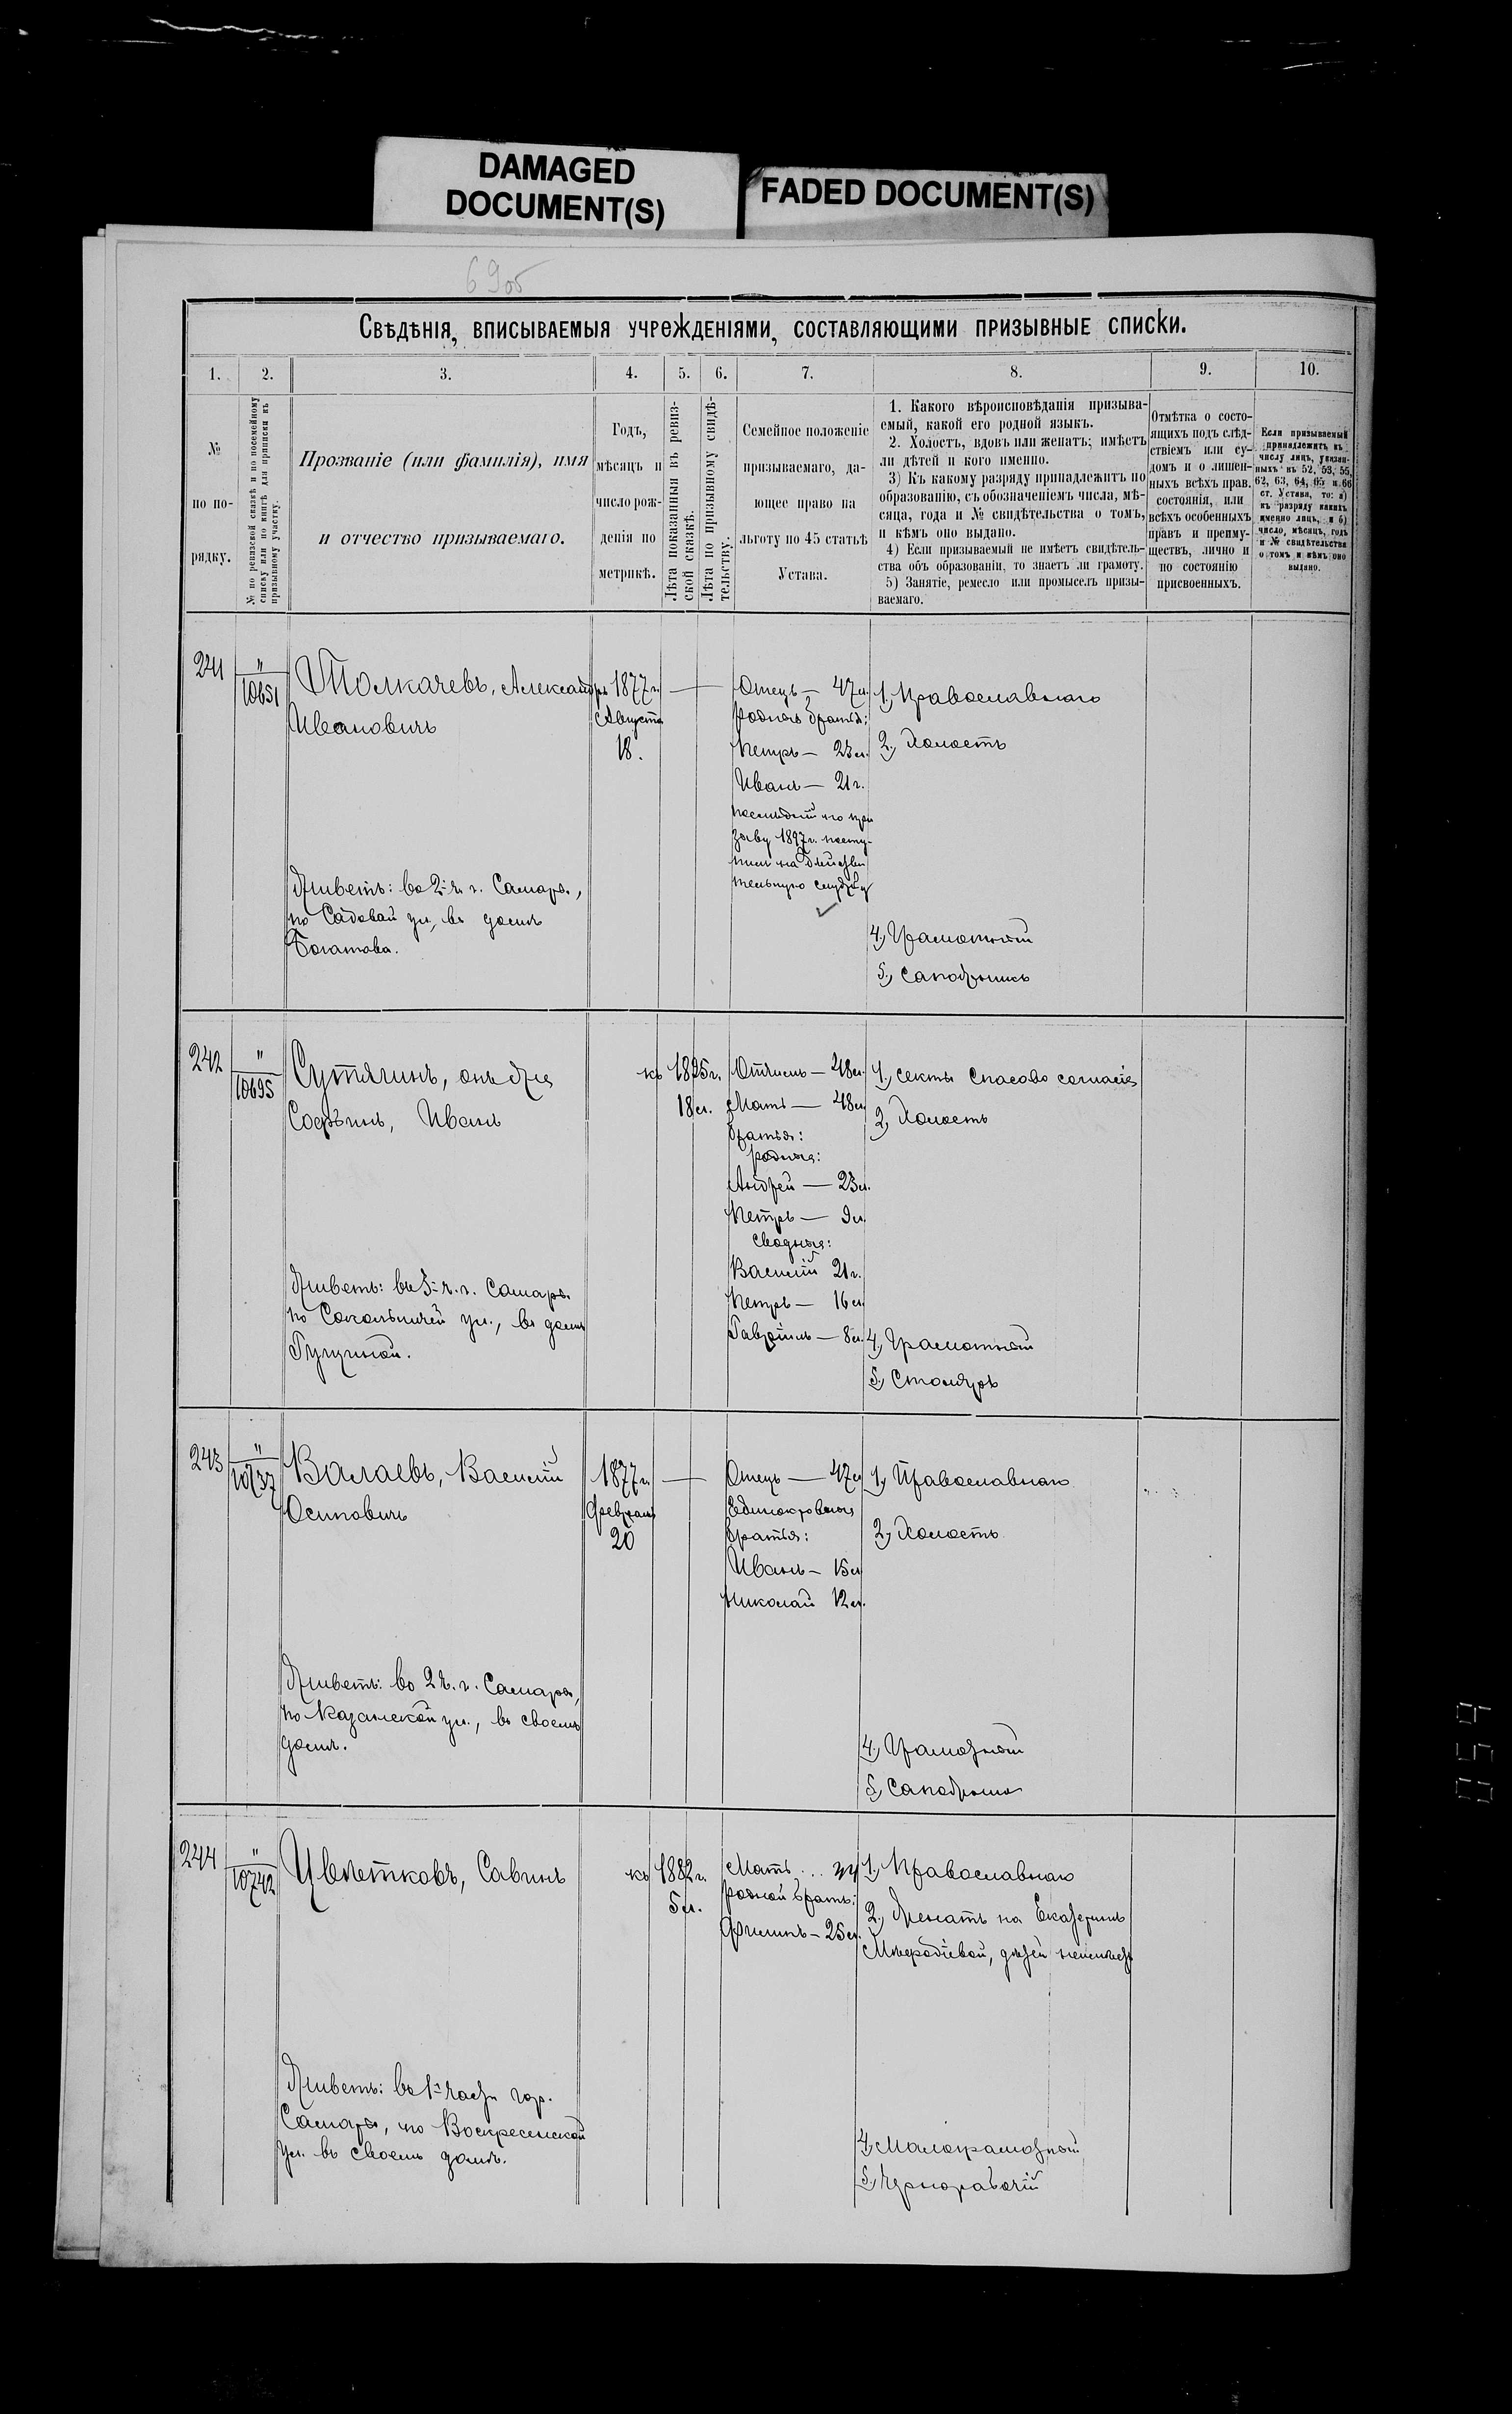 DAMAGED
DOCUMENT(S)
FADED DOCUMENT(S)
69об
Свѣдѣнія, вписываемыя учрежденіями, составляющими призывные списки.
1. 2. 3. 4. 5. 6. 7. 8. 9. 10.
№
по по-
рядку.
№ по ревизской сказкѣ и по посемейному
списку или по книгѣ для приписки къ
призывному участку.
Прозваніе (или фамилія), имя
и отчество призываемаго.
Годъ,
мѣсяцъ и
число рож-
денія по
метрикѣ.
Лѣта показанныя въ ревиз-
ской сказкѣ.
Лѣта по призывному свидѣ-
тельству.
Семейное положеніе
призываемаго, да-
ющее право на
льготу по 45 статьѣ
Устава.
1. Какого вѣроисповѣданія призыва-
емый, какой его родной языкъ.
2. Холостъ, вдовъ или женатъ; имѣетъ
ли дѣтей и кого именно.
3) Къ какому разряду принадлежитъ по
образованію, съ обозначеніемъ числа, мѣ-
сяца, года и № свидѣтельства о томъ,
и кѣмъ оно выдано.
4) Если призываемый не имѣетъ свидѣтель-
ства объ образованіи, то знаетъ ли грамоту.
5) Занятіе, ремесло или промыселъ призы-
ваемаго.
Отмѣтка о состо-
ящихъ подъ слѣд-
ствіемъ или су-
домъ и о лишен-
ныхъ всѣхъ прав.
состоянія, или
всѣхъ особенныхъ
правъ и преиму-
ществъ, лично и
по состоянію
присвоенныхъ.
Если призываемый
принадлежитъ къ
числу лицъ, указан-
ныхъ въ 52, 53, 55,
62, 63, 64, 65 и 66
ст. Устава, то: а)
къ разряду какихъ
именно лицъ, и б)
число, мѣсяцъ, годъ
и № свидѣтельства
о томъ и кѣмъ оно
выдано.
241
"
10651
Толкачевъ, Александръ
Ивановичъ
Живетъ: во 2й ч. г. Самары,
по Садовой ул., въ домѣ
Богатова.
1877 г.
Августа
18.
Отецъ — 47 л.
родные братья:
Петръ — 23 л.
Иванъ — 21 г.
послѣдній по при
зыву 1897 г. посту-
пилъ на дѣйстви
тельную службу
1., Православнаго
2., Холостъ
4., Грамотный
5., Сапожникъ
242
"
10695
Сутягинъ, онъ же
Софьинъ, Иванъ
Живетъ: въ 3й ч. г. Самары
по Сокольничей ул., въ домѣ
къ 1895 г.
18 л.
Отчимъ — 48 л.
Мать — 48 л.
братья:
родные:
Андрей — 23 л.
Петръ — 9 л.
сводные:
Василій 21 г.
Петръ — 16 л.
Гавріилъ — 8 л.
1., секты Спасово согласіе
2., Холостъ
4., Грамотный
5., Столяръ
243
"
10737
Валаевъ, Василій
Осиповичъ
Живетъ: во 2 ч. г. Самары,
по Казанской ул., въ своемъ
домѣ.
1877 г.
Февраля
20
Отецъ — 47 л.
Единокровные
братья:
Иванъ — 15 л.
Николай 12 л.
1., Православнаго
2., Холостъ
4., Грамотный
5., Сапожникъ
244
"
10742
Цвѣтковъ, Савинъ
Живетъ: въ 1й части гор.
Самары, по Воскресенской
ул. въ своемъ домѣ.
къ 1882 г.
5 л.
Мать...
родной братъ:
Филипъ — 25 л.
1., Православнаго
2., Женатъ на Екатеринѣ
Меѳодіевой, дѣтей неимѣетъ
4., Малограмотный
5., Чернорабочій
059